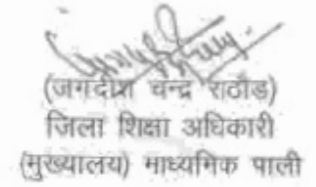 (जगदीश चन्द्र राठौड)
जिला शिक्षा अधिकारी
(मुख्यालय) माध्यमिक पाली